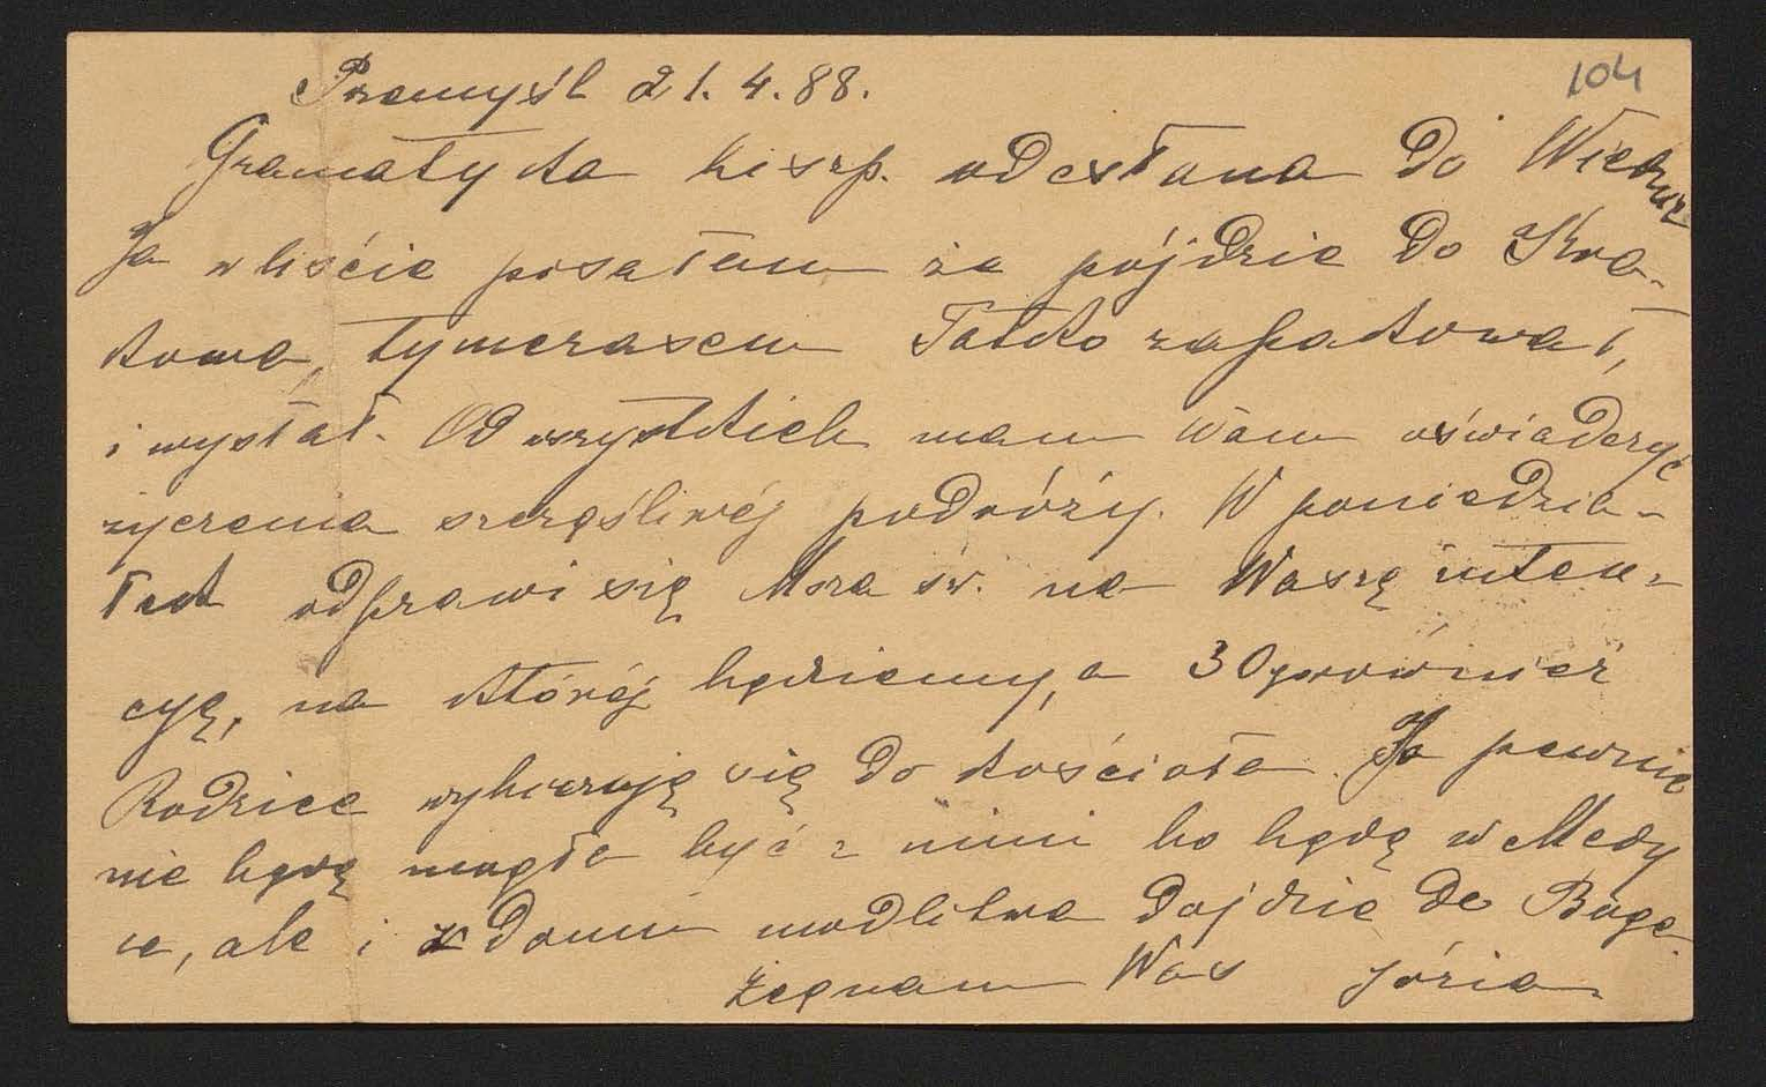 104
Przemyśl 21.4.88.
Gramatyka hiszp. odesłana do Wiednia
Ja w liście pisałam że pójdzie do Kra-
kowa, tymczasem Tatko zapakował,
i wysłał. Od wszystkich mam Wam oświadczyć
życzenia szczęśliwéj podróży. W poniedzia-
łek odprawi się Msza św. na Waszę inten-
cyę, na któréj będziemy, a 30go również
Rodzice wybierają się do kościoła. Ja pewnie
nie będę mogła być z nimi bo będę w Medy
ce, ale i z domu modlitwa dojdzie do Boga.
Żegnam Was Józia